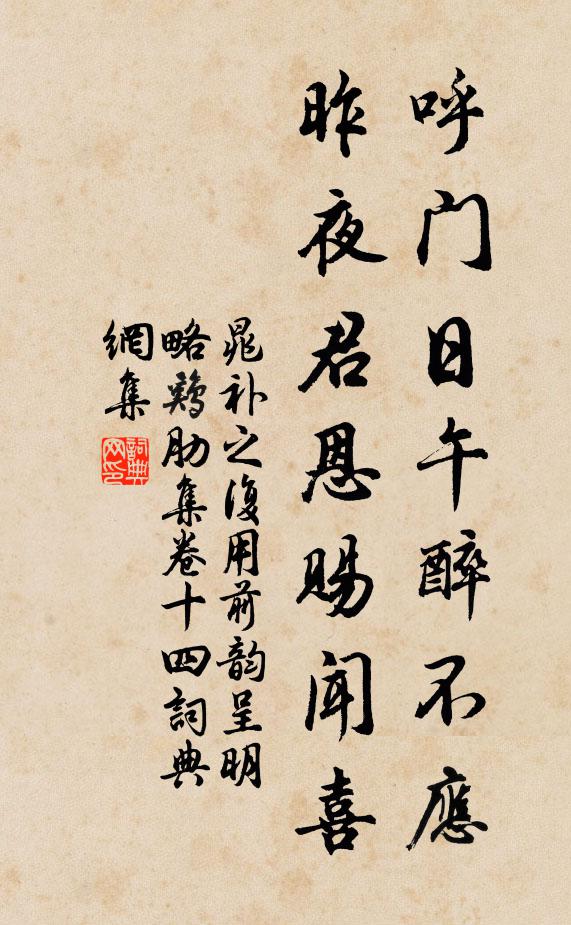 呼门日午醉不應
昨夜君恩赐闻喜
晁补之復用前韵呈明
略鶏肋集卷十四詞典
網集
詞典网印